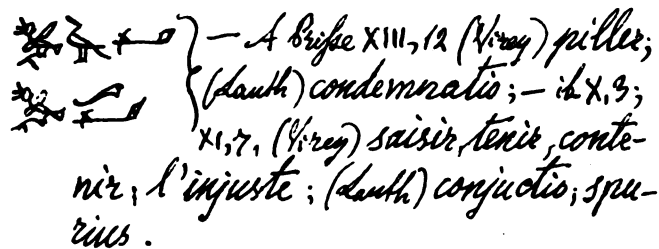 — A Prisse XIII, 12 (Virey) piller;
(Lauth) condemnatio; — ib X, 3;
XI, 7, (Virey) saisir, tenir, conte-
nir, l'injuste; (Lauth) conjuctio; spu-
rius.